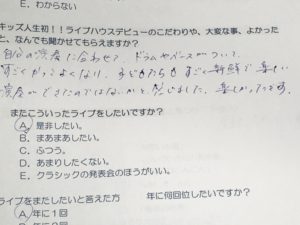 E、わからない
キッズ人生初！！ライブハウスデビューのこだわりや、大変な事、よかった
と、なんでも聞かせてもらえますか？
自分の演奏に合わせて、ドラムやベースがついて、
すごくかっこよくなり、子どもたちもすごく新鮮で楽しい
演奏ができたのではないかと、感じました。楽しかったです。
またこういったライブをしたいですか？
A、是非したい。
B、まあまあしたい。
C、ふつう。
D、あまりしたくない。
E、クラシックの発表会のほうがいい。
ライブをまたしたいと答えた方 年に何回位したいですか？
A、年に１回